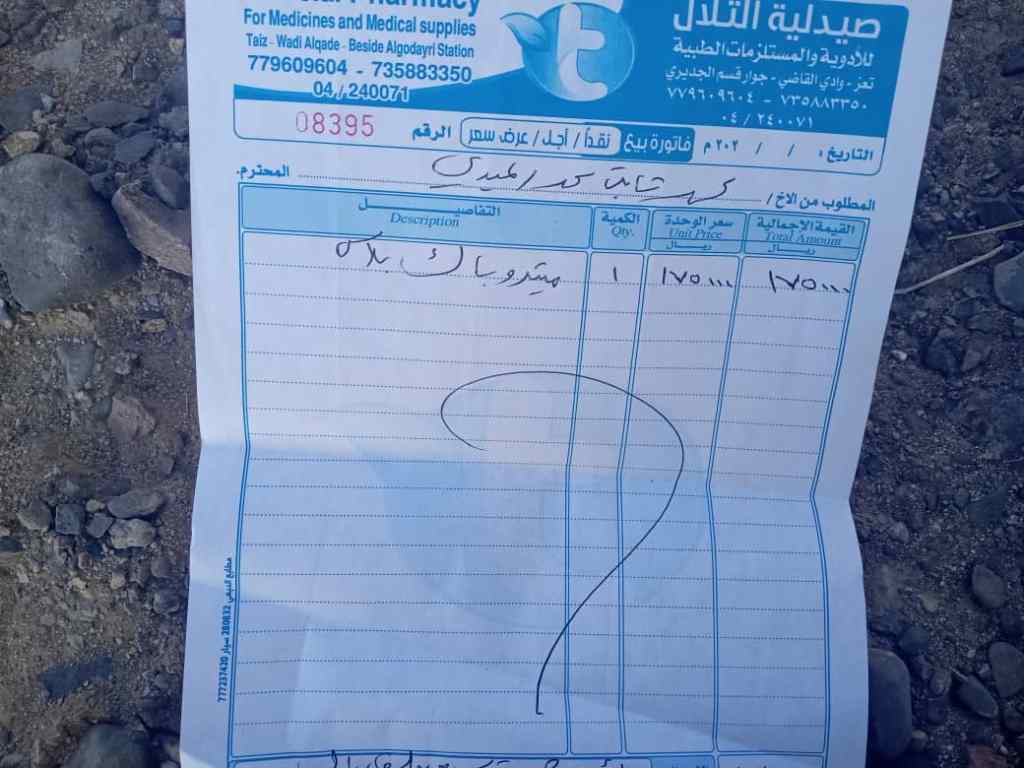 Pharmacy
For Medicines and Medical supplies
Taiz - Wadi Alqade - Beside Algodayri Station
779609604 - 735883350
04 / 240071
صيدلية التلال
للأدوية والمستلزمات الطبية
تعز - وادي القاضي - جوار قسم الجديري
٧٧٩٦٠٩٦٠٤ - ٧٣٥٨٨٣٣٥٠
٠٤ / ٢٤٠٠٧١
التاريخ : / / ٢٠٢ م فاتورة بيع نقداً / أجل / عرض سعر الرقم 08395
المطلوب من الاخ / المحترم.
القيمة الإجمالية سعر الوحدة الكمية التفاصيل
Total Amount Unit Price Qty. Description
ريال ريال
١٧٥٠٠٠ ١٧٥٠٠٠ ١ ميترو باك بلاس
777237430 سيار 280832